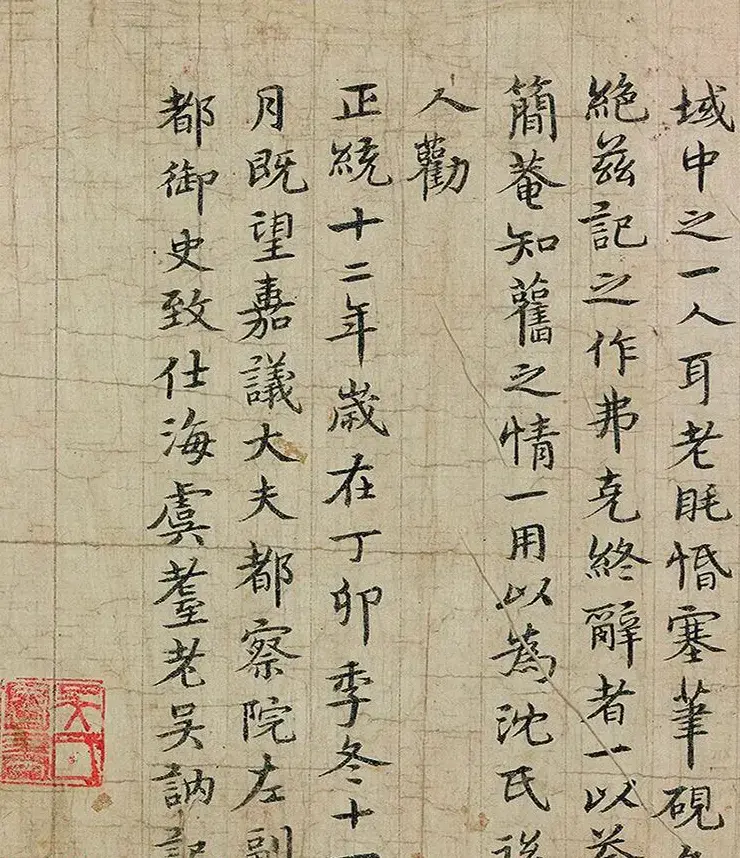 域中之一人耳老眊惛塞筆硯
絕茲記之作弗克終辭者一以
簡菴知舊之情一用以為沈氏
人勸
正統十二年歲在丁卯季冬十
月既望嘉議大夫都察院左副
都御史致仕海虞耋老吳訥記